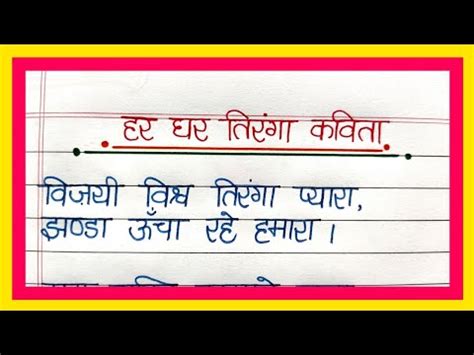 हर घर तिरंगा कविता
विजयी विश्व तिरंगा प्यारा,
झण्डा ऊँचा रहे हमारा ।